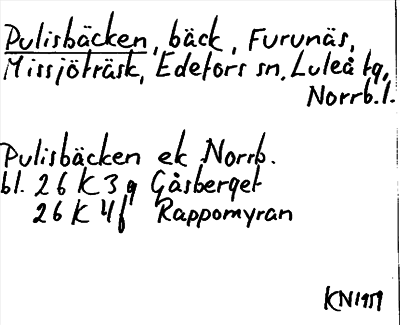 Pulisbäcken, bäck, Furunäs,
Missjöträsk, Edefors sn, Luleå tg,
Norrb.l.
Pulisbäcken ek Norrb.
bl. 26 K 3 g Gåsberget
26 K 4 f Rappomyran
KN 1959